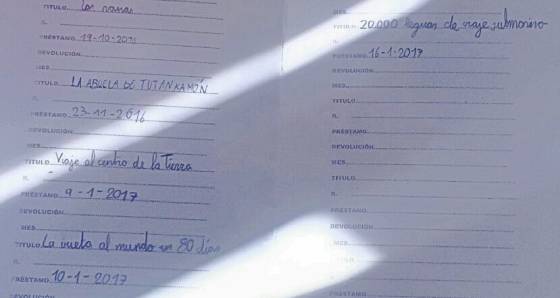 TITULO Las
N.
PRÉSTAMO 19-10-2016
DEVOLUCIÓN
MES
TITULO LA ABUELA DE TUTANKAMÓN
N.
PRÉSTAMO 23-11-2016
DEVOLUCIÓN
MES
TITULO Viaje al centro de la Tierra
N.
PRÉSTAMO 9-1-2017
DEVOLUCIÓN
MES
TITULO La vuelta al mundo en 80 días
N.
PRÉSTAMO 10-1-2017
DEVOLUCIÓN
MES
TITULO 20.000 leguas de viaje submarino
N.
PRÉSTAMO 16-1-2017
DEVOLUCIÓN
MES
TITULO
N.
PRÉSTAMO
DEVOLUCIÓN
MES
TITULO
N.
PRÉSTAMO
DEVOLUCIÓN
MES
TITULO
N.
PRÉSTAMO